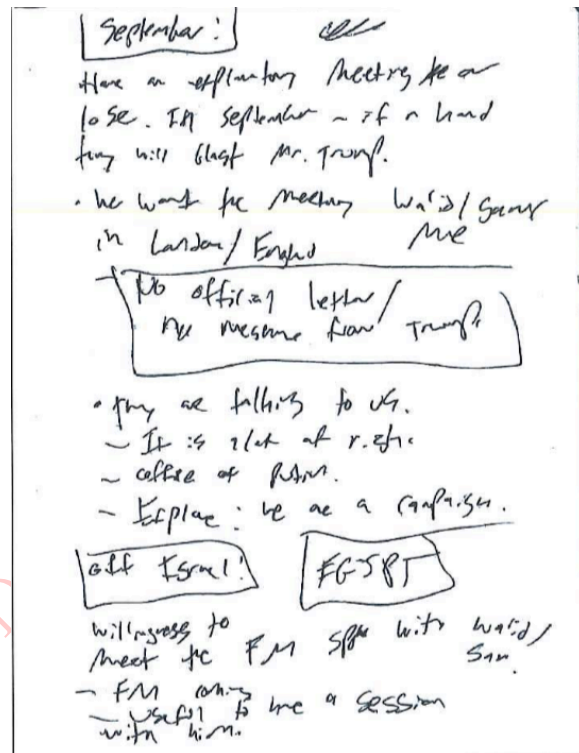 September:
Have an exploratory meeting to or
lose. In September – if a hand
they will blast Mr. Trump.
• We want the meeting Walid/
in London/England me
No official letter/
no message from Trump.
• They are talking to us.
– It is a lot of risk.
– office of Putin.
– Explore: we are a campaign.
off Israel! EGYPT
Willingness to
meet the FM with Walid/
Sam
– FM coming
– Useful to have a session
with him.